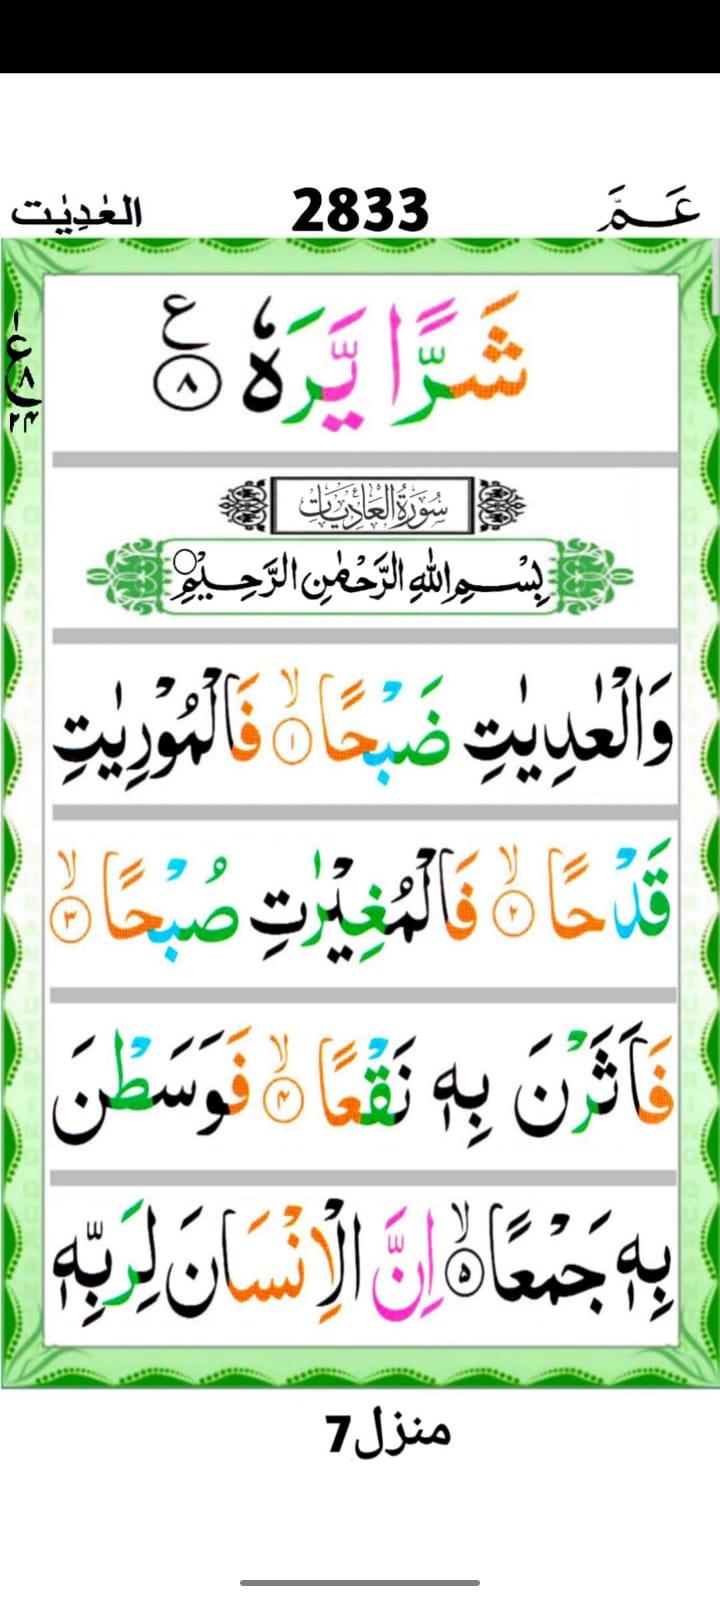 العٰدِيٰت 2833 عَـمَّ
شَرًّا يَّرَهٗ ۸ ع
ع ۸ ۲۴
سُورَةُ العَادِيَات
بِسْمِ اللّٰهِ الرَّحْمٰنِ الرَّحِيْمِ
وَالْعٰدِيٰتِ ضَبْحًا ۙ ۱ فَالْمُوْرِيٰتِ
قَدْحًا ۙ ۲ فَالْمُغِيْرٰتِ صُبْحًا ۙ ۳
فَاَثَرْنَ بِهٖ نَقْعًا ۙ ۴ فَوَسَطْنَ
بِهٖ جَمْعًا ۙ ۵ اِنَّ الْاِنْسَانَ لِرَبِّهٖ
منزل7